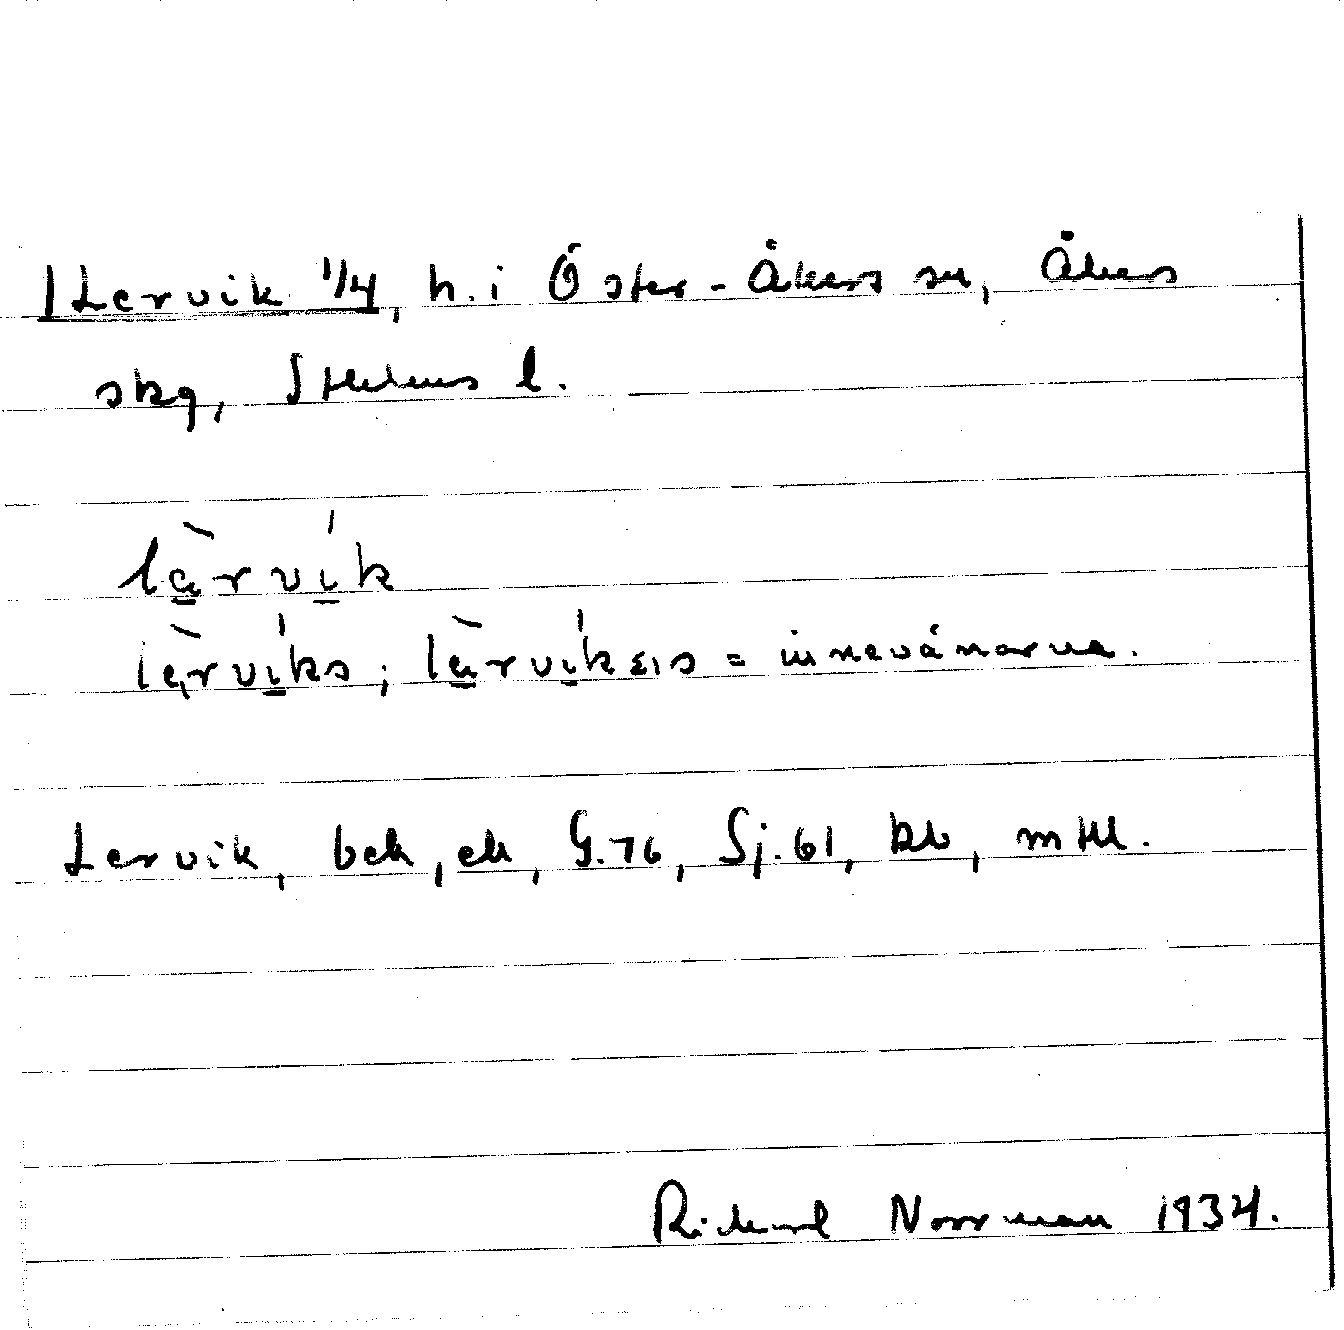 Lervik 1/4, h. i Öster-Åkers sn, Åkers
skg, Sthlms l.
làrvík
lèrvíks; làrvíkɛɪs = innevånarna.
Lervik, bek, ek, G.76, Sj.61, kb, mtl.
Richard Norrman 1934.